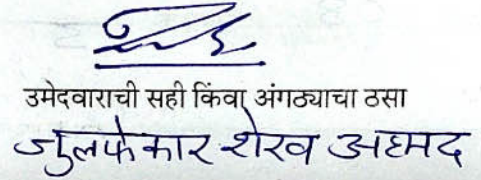 उमेदवाराची सही किंवा अंगठ्याचा ठसा
जुलफेकार शेख अहमद